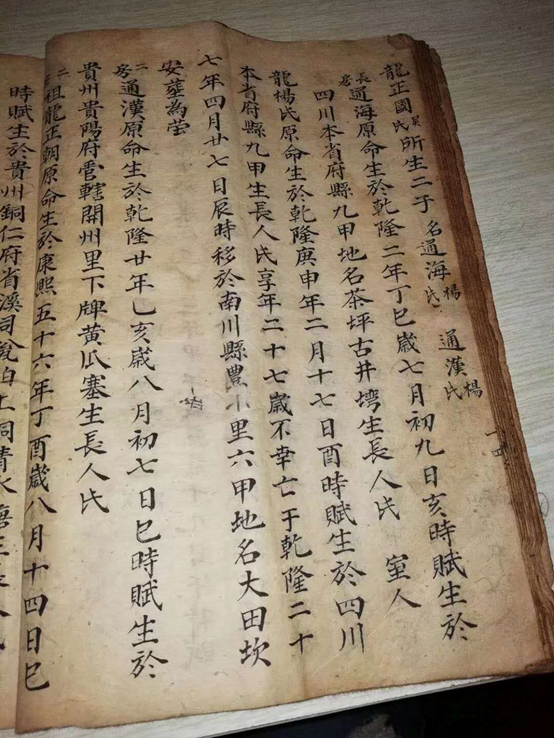 龍正國吴氏所生二子名通海楊氏 通漢楊氏
長房通海原命生於乾隆二年丁巳歲七月初九日亥時賦生於
四川本省府縣九甲地名茶坪古井塆生長人氏 室人
龍楊氏原命生於乾隆庚申年二月十七日酉時賦生於四川
本省府縣九甲生長人氏享年二十七歲不幸亡于乾隆二十
七年四月廿七日辰時移於南川縣豊 里六甲地名大田坎
安葬為塋
二房通漢原命生於乾隆廿年乙亥歲八月初七日巳時賦生於
貴州貴陽府管轄開州里下牌黄瓜塞生長人氏
二 祖龍正朝原命生於康熙五十六年丁酉歲八月十四日巳
時賦生於貴州銅仁府省溪司 白土洞清水塘